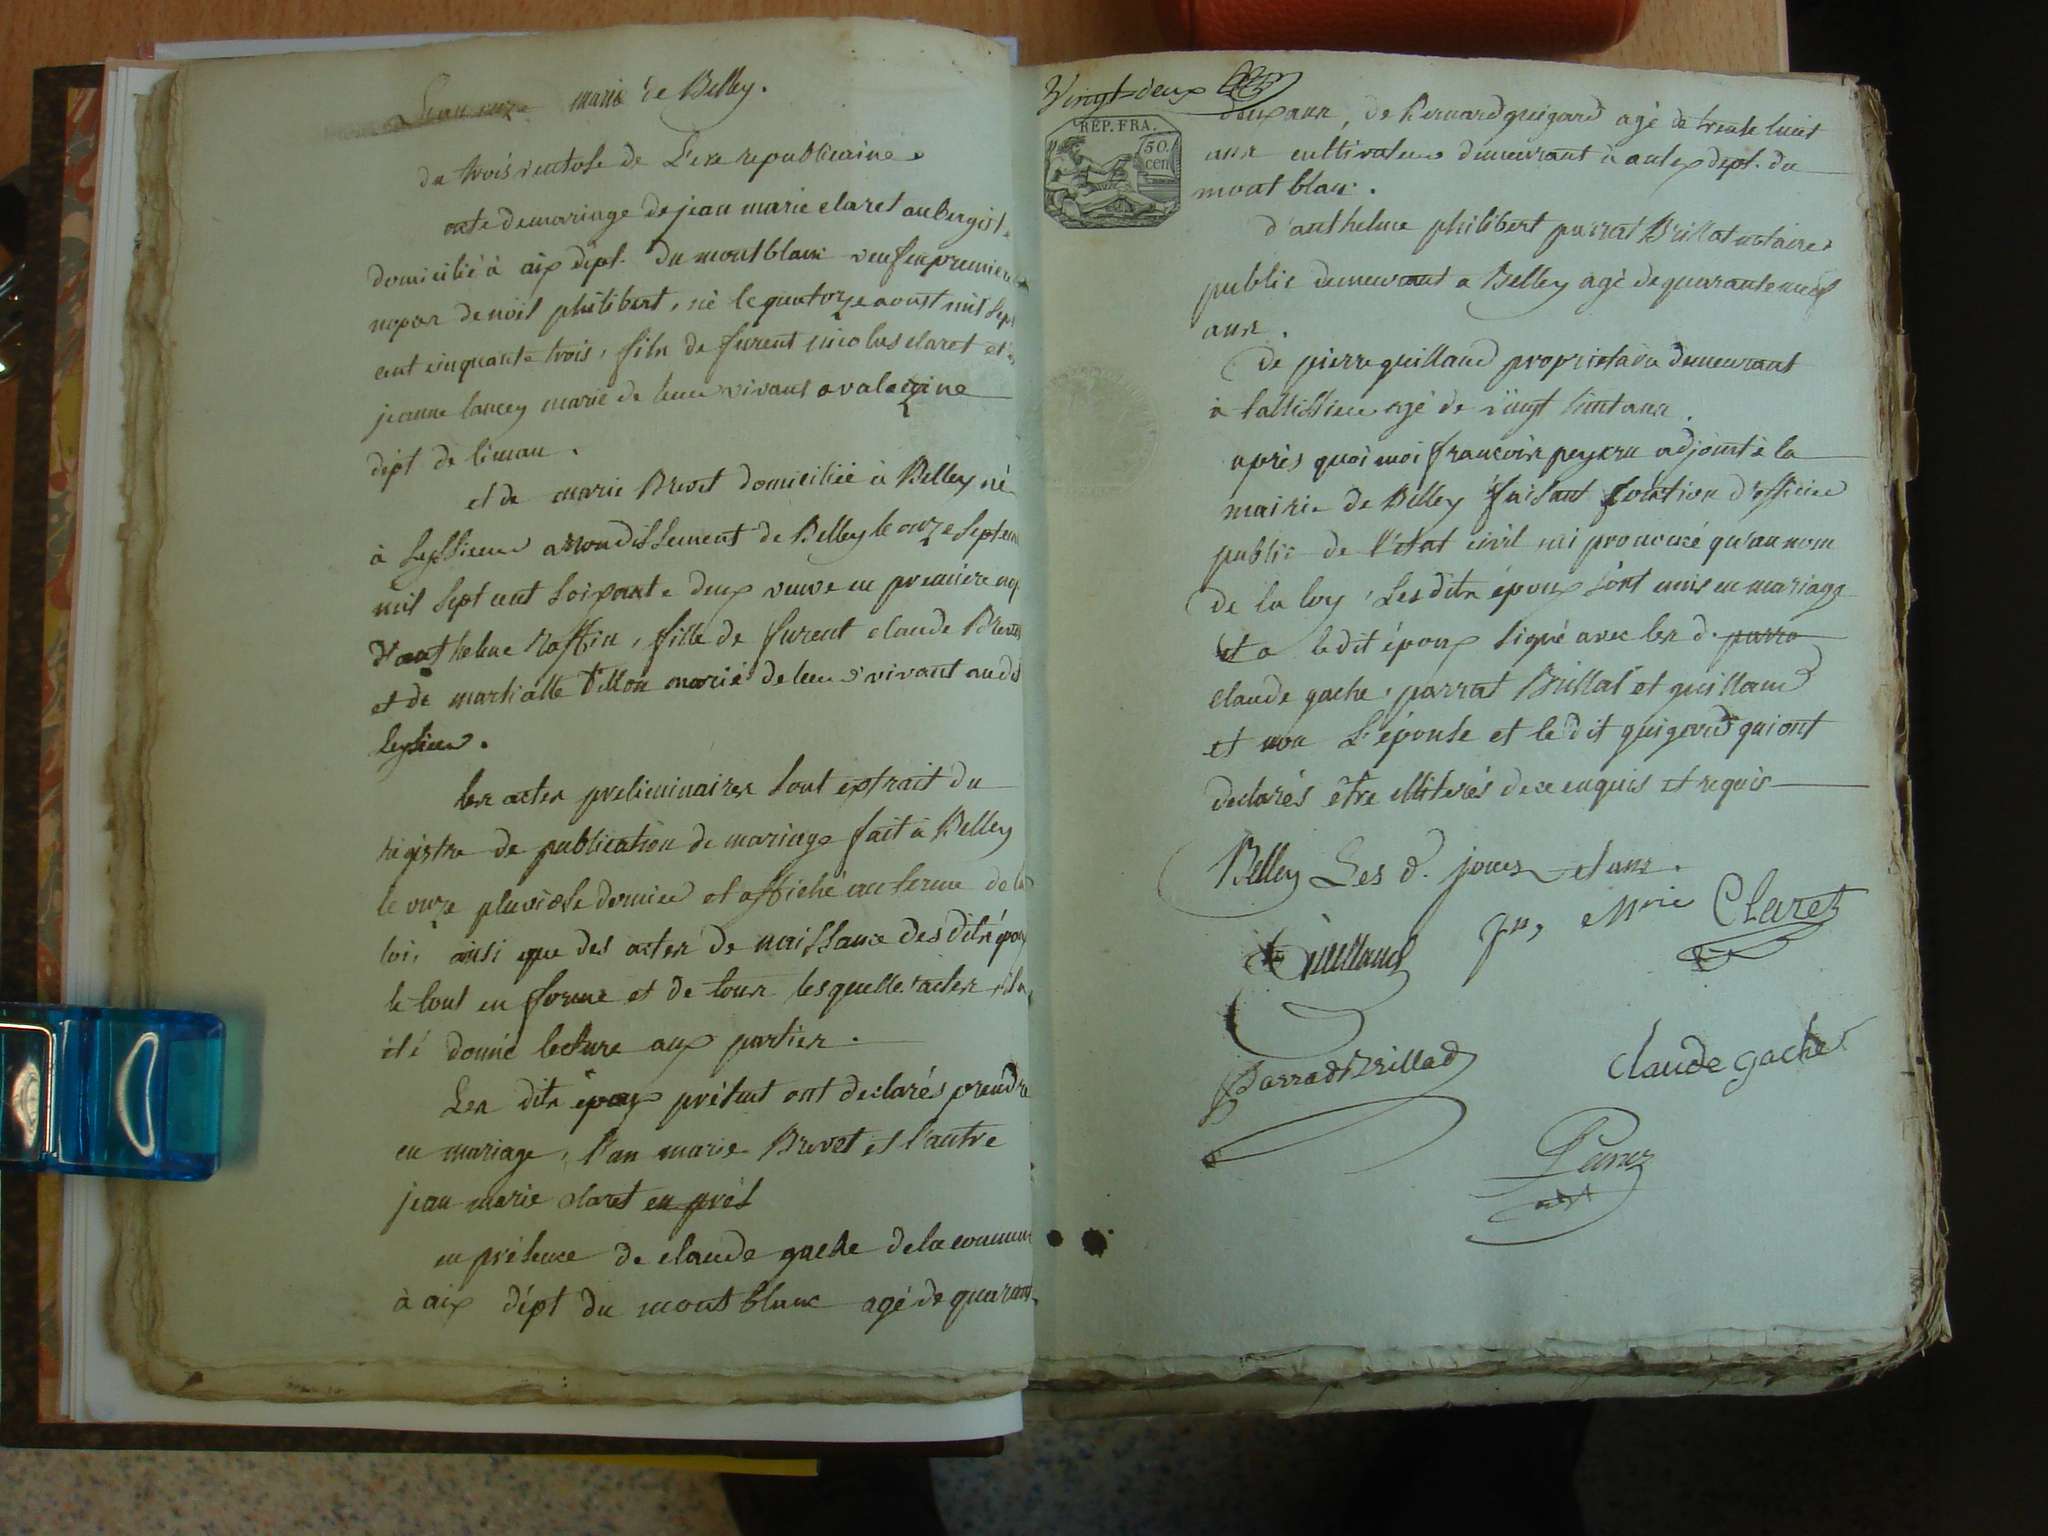 L'an onze mairie de Belley.
du trois ventose de L'ere republicaine
acte de mariage de jean marie claret aubergiste
domicilié à aix dépt. du montblanc veuf en premiere
nopces de noil philibert, né le quatorze aoust mil sept
cent cinquante trois, fils de furent nicolas claret et
jeanne lancey marié de leur vivant a valeyrine
dépt de léman.
et de marie Brevet domiciliée à Belley né
à Seyssieux arrondissement de Belley le onze septem
mil sept cent soixante deux veuve en première nop
d'anthelme Roffin, fille de furent claude Brevet
et de martialle Tillon marié de leur vivant au dit
Leyssieu.
les actes preliminaires sont extrait du
régistre de publication de mariage fait à Belley
le onze pluviose dernier et affiché au terme de la
loi, ainsi que des actes de naissance des dits époux
le tout en forme et de tous lesquelles actes il a
été donné lecture aux parties.
Les dits époux présent ont declarés prendre
en mariage, l'un marie Brevet et l'autre
jean marie claret en prés
en présence de claude gache de la commune
à aix dépt du mont blanc agé de quarante
Vingt-deux
RÉP. FRA.
50.
cen
deux ans, de Bernard guigard agé de trente huit
ans cultivateur demeurant à aulex dept. du
mont blanc.
d'anthelme philibert parrat Brillat notaire
public demeurant a Belley agé de quarante neuf
ans.
de pierre guilland propriétaire demeurant
à lattissieu agé de vingt huit ans.
après quoi moi francois peyzru adjoint à la
mairie de Belley faisant fonction d'officier
public de l'état civil ai prononcé qu'au nom
de la loy, Les dits époux sont unis en mariage
et a ledit époux signé avec les d. parra
claude gache, parrat Brillat et guilland
et non L'épouse et le dit guigard qui ont
declarés être illiterés de ce enquis et requis
Belley Les d. jours et ans.
Guilland
Jn, Mrie Claret
Parrat Brillat
claude gache
adjt